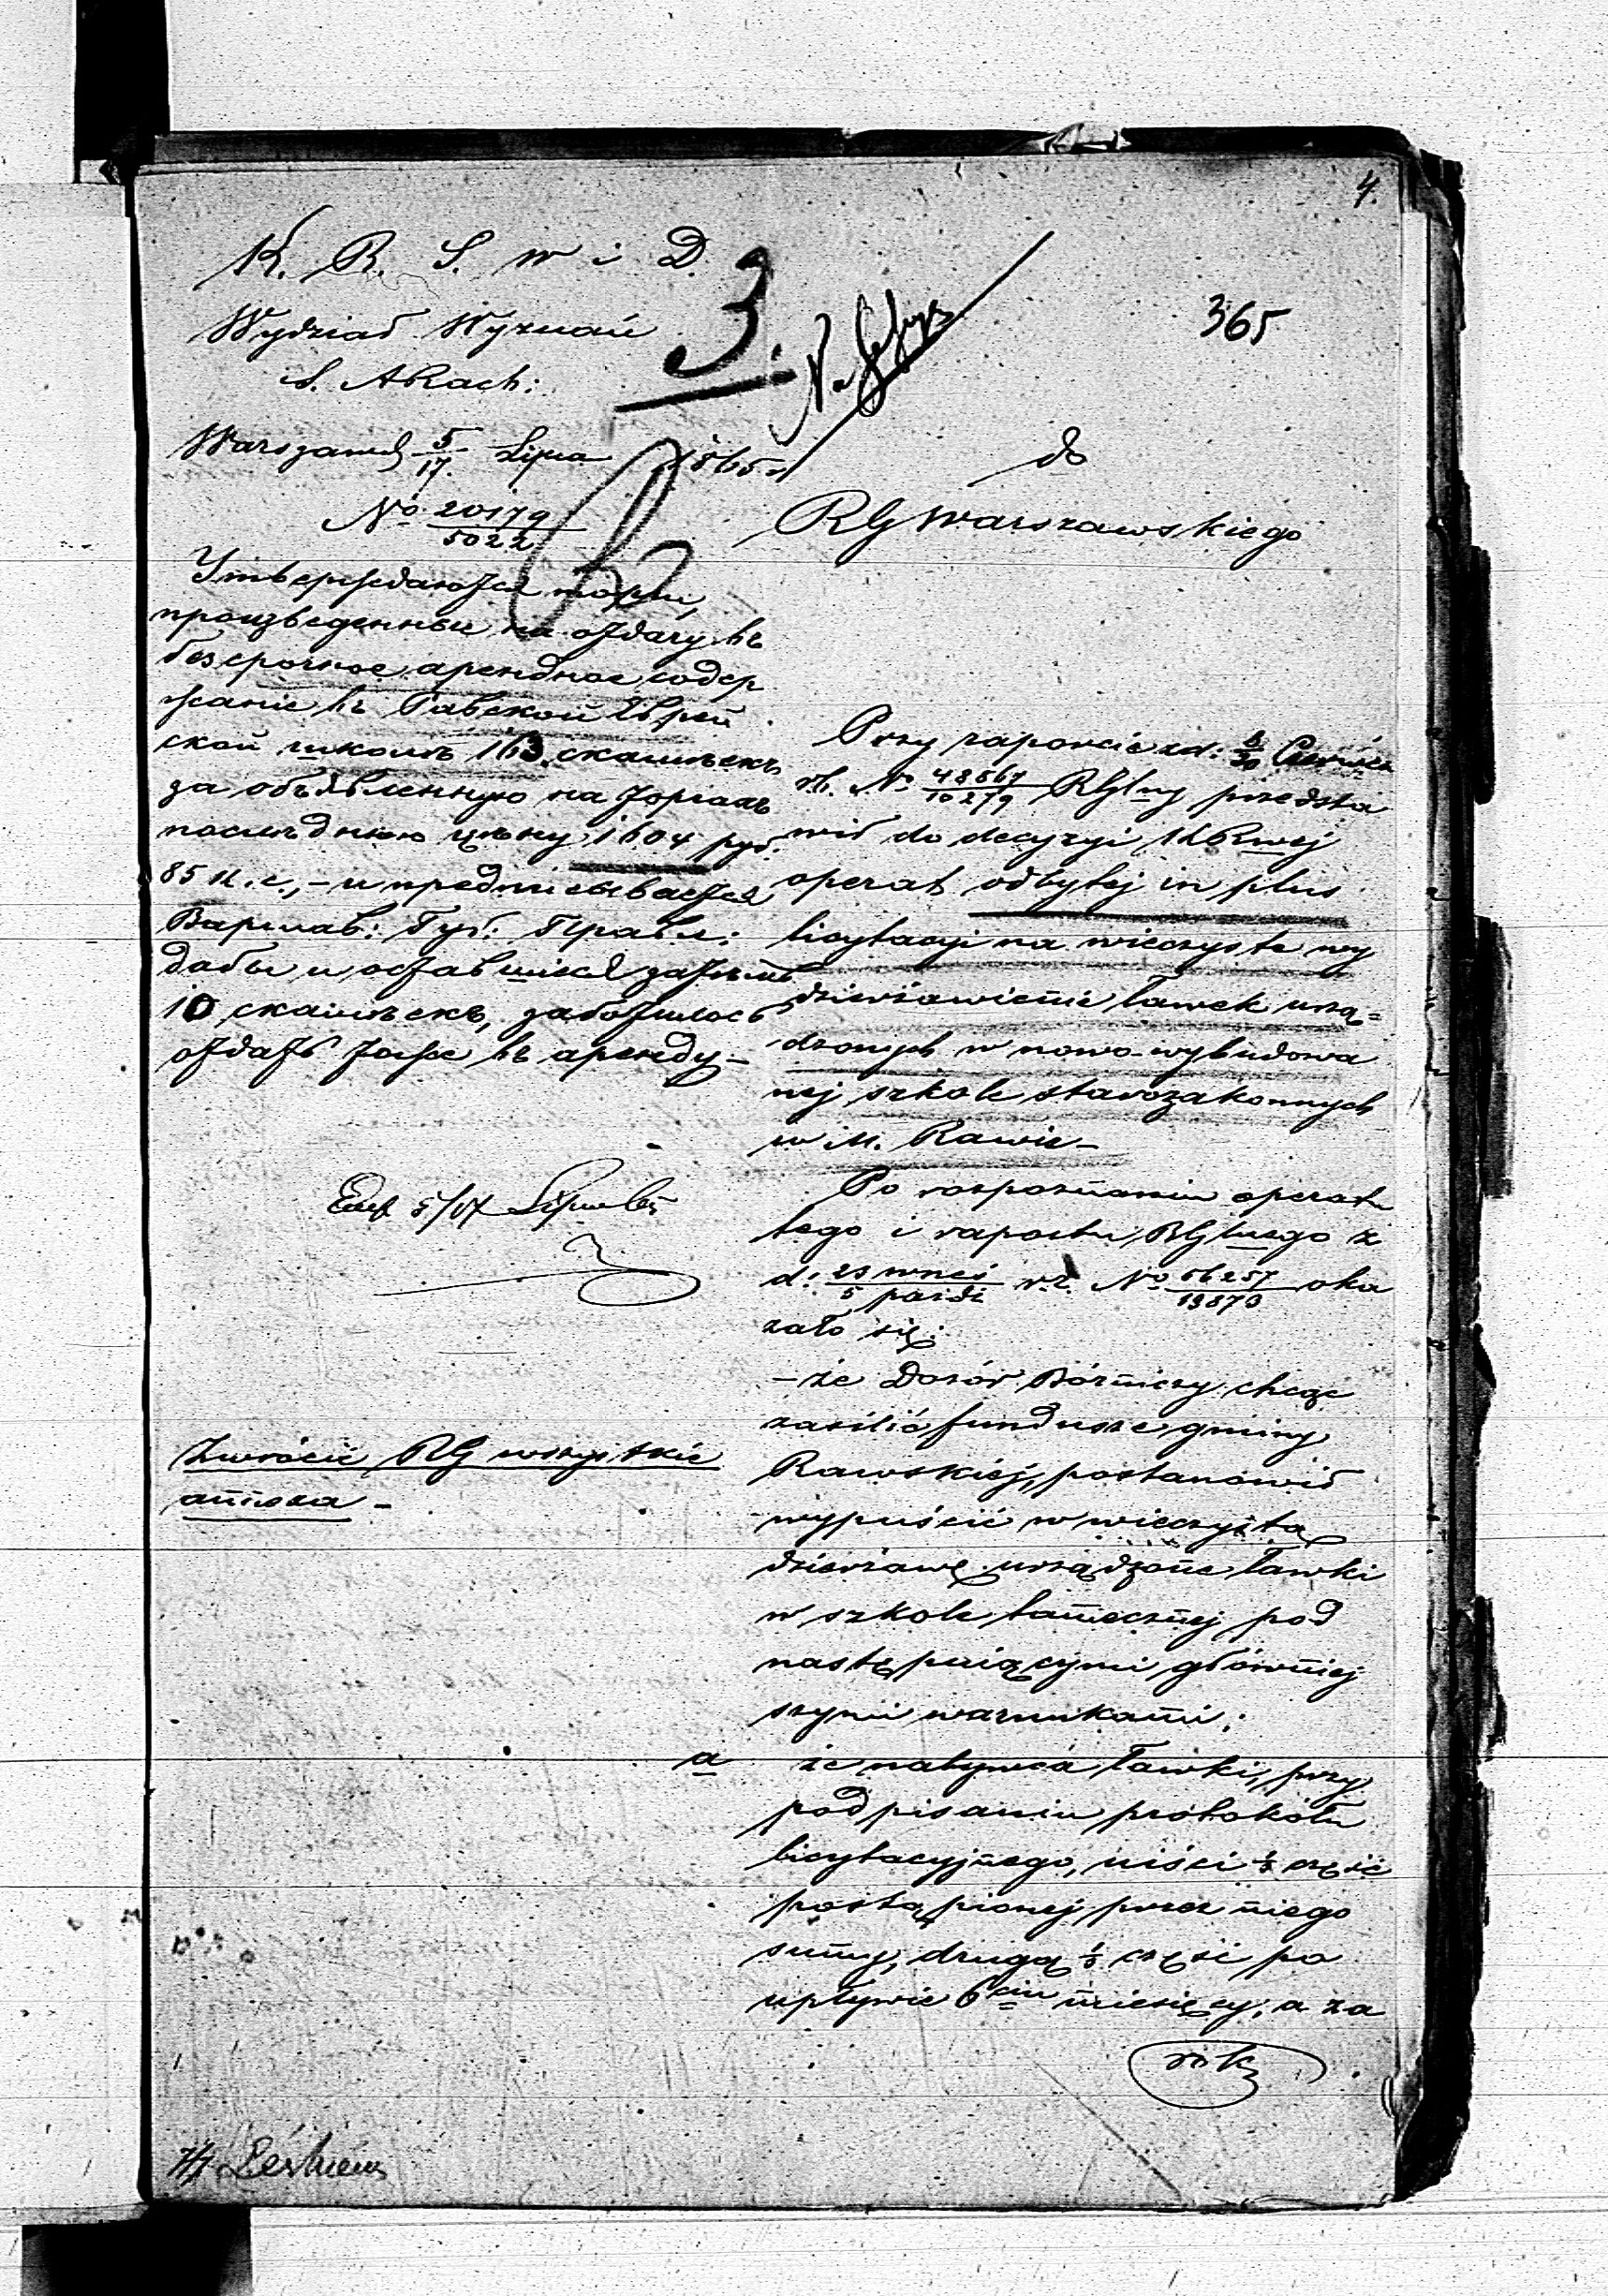 4.
365
K. R. S. W i D.
3.
Wydział Wyznań
S. A Rach:
Warszawa 5/17 Lipca 1865 r
№ 20179/5022
do
RG Warszawskiego
Утверждаются торги,
произведенные на отдачу въ
безсрочное арендное содер
жаніе въ Равской Еврей
ской школѣ 163 скамѣекъ
за объявленную на торгахъ
послѣднюю цѣну 1604 руб.
85 к. с., – и предписывается
Варшав: Губ: Правл:
дабы и оставшіеся затѣмъ
10 скамѣекъ, заботилось
отдать тоже въ аренду –
5/17 Lipca
Zwrócić RG wszystkie
annexa –
Przy raporcie z d: Czerwca
rb. № 48567/10279 RGlny przedsta
wił do decyzyi KRwej
operat odbytej in plus
licytacyi na wieczyste wy
dzierżawienie ławek urzą=
dzonych w nowo-wybudowa
nej szkole starozakonnych
w m. Rawie –
Po rozpoznaniu operatu
tego i raportu RGlnego z
d: 23 wrześ/5 paźdź r.z. № 56257/19873 oka
zało się:
– że Dozór Bóżniczy chcąc
zasilić fundusze gminy
Rawskiej, postanowił
wypuścić w wieczystą
dzierżawę urządzone ławki
w szkole tamecznej pod
następującymi główniej
szymi warunkami:
a że nabywca ławki, przy
podpisaniu protokółu
licytacyjnego, uiści 1/3 część
postąpionej przez niego
summy, drugą 1/3 część po
upływie 6ciu miesięcy, a za
rok